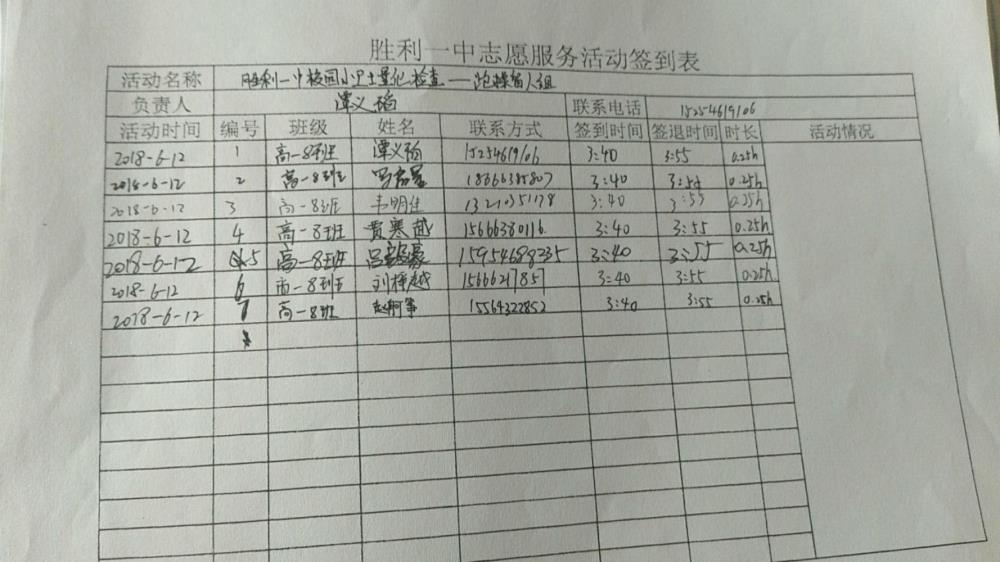 胜利一中志愿服务活动签到表
活动名称 胜利一中校园小卫士量化检查——跑操留人组
负责人 谭义韬 联系电话 15254619106
活动时间 编号 班级 姓名 联系方式 签到时间 签退时间 时长 活动情况
2018-6-12 1 高一8班 谭义韬 15254619106 3:40 3:55 0.25h
2018-6-12 2 高一8班 18666385807 3:40 3:55 0.25h
2018-6-12 3 高一8班 韦明佳 13210351178 3:40 3:55 0.25h
2018-6-12 4 高一8班 贾寒越 15666380116 3:40 3:55 0.25h
2018-6-12 5 高一8班 15954688235 3:40 3:55 0.25h
2018-6-12 6 高一8班 3:40 3:55 0.25h
2018-6-12 7 高一8班 15564322852 3:40 3:55 0.25h